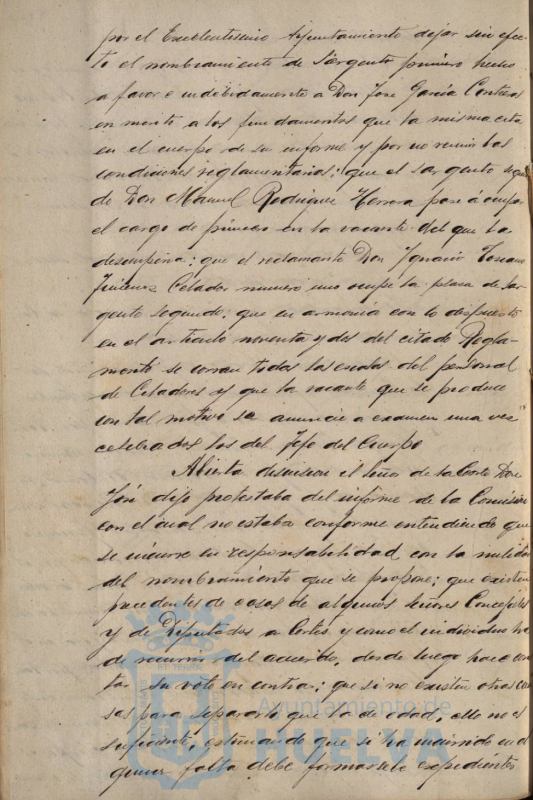 por el Excelentisimo Ayuntamiento dejar sin efec-
to el nombramiento de Sargento primero hecho
a favor e indebidamente a Don Jose Garcia Contreras
en merito a los fundamentos que la misma cita
en el cuerpo de su informe y por no reunir las
condiciones reglamentarias; que el sargento segun
do Don Manuel Rodriguez Herrera pase á ocupar
el cargo de primero en la vacante del que la
desempeña; que el reclamante Don Ignacio Toscano
Jimenez Celador numero uno ocupe la plaza de Sar-
gento segundo; que en armonia con lo dispuesto
en el articulo noventa y dos del citado Regla-
mento se corran todas las escalas del personal
de Celadores y que la vacante que se produce
con tal motivo se anuncie a examen una vez
celebrados los del Jefe del Cuerpo
Abierta discusion el Señor de la Corte Don
José dijo protestaba del informe de la Comision
con el cual no estaba conforme entendiendo que
se incurre en responsabilidad con la nulidad
del nombramiento que se propone; que existen
precedentes de casos de algunos señores Concejales
y de Diputados a Cortes y como el individuo ha
de recurrir del acuerdo, desde luego hace cons
ta su voto en contra; que si no existen otras cau
sas para separarlo que la de edad, ello no es
suficiente, estimando que si ha incurrido en al
guna falta debe formarsele expediente
Ayuntamiento de
HUELVA